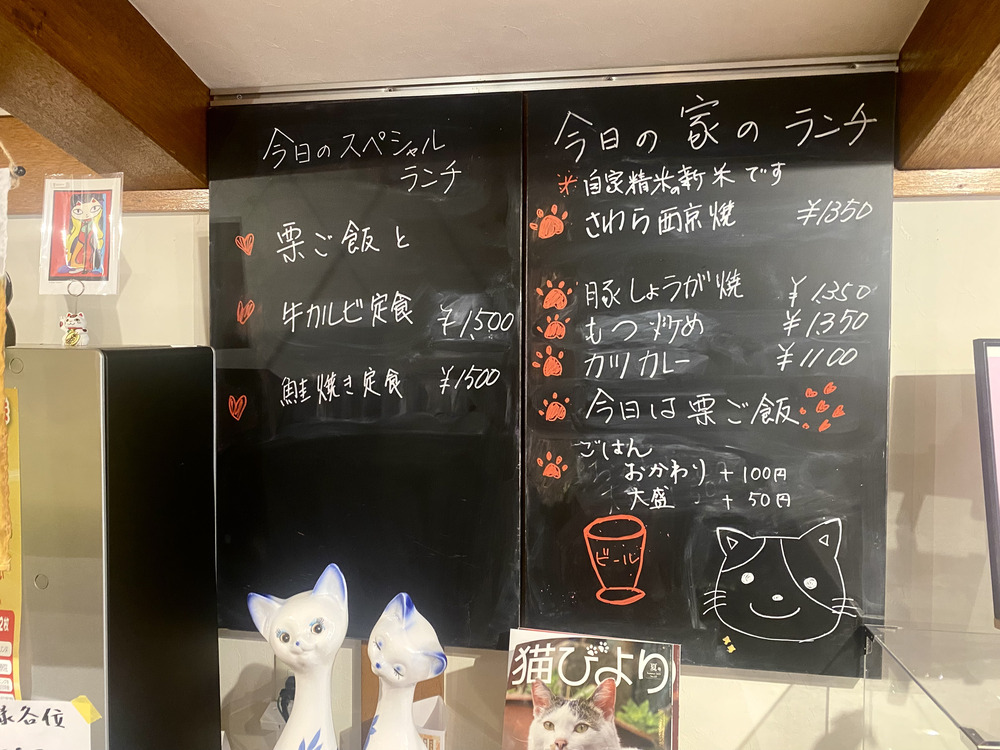 今日のスペシャル
ランチ
栗ご飯と
牛カルビ定食 ¥1,500
鮭焼き定食 ¥1500
今日の家のランチ
※自家精米の新米です
さわら西京焼 ¥1350
豚しょうが焼 ¥1350
もつ炒め ¥1350
カツカレー ¥1100
今日は栗ご飯
ごはん
おかわり +100円
大盛 +50円
ビール
猫びより
様各位